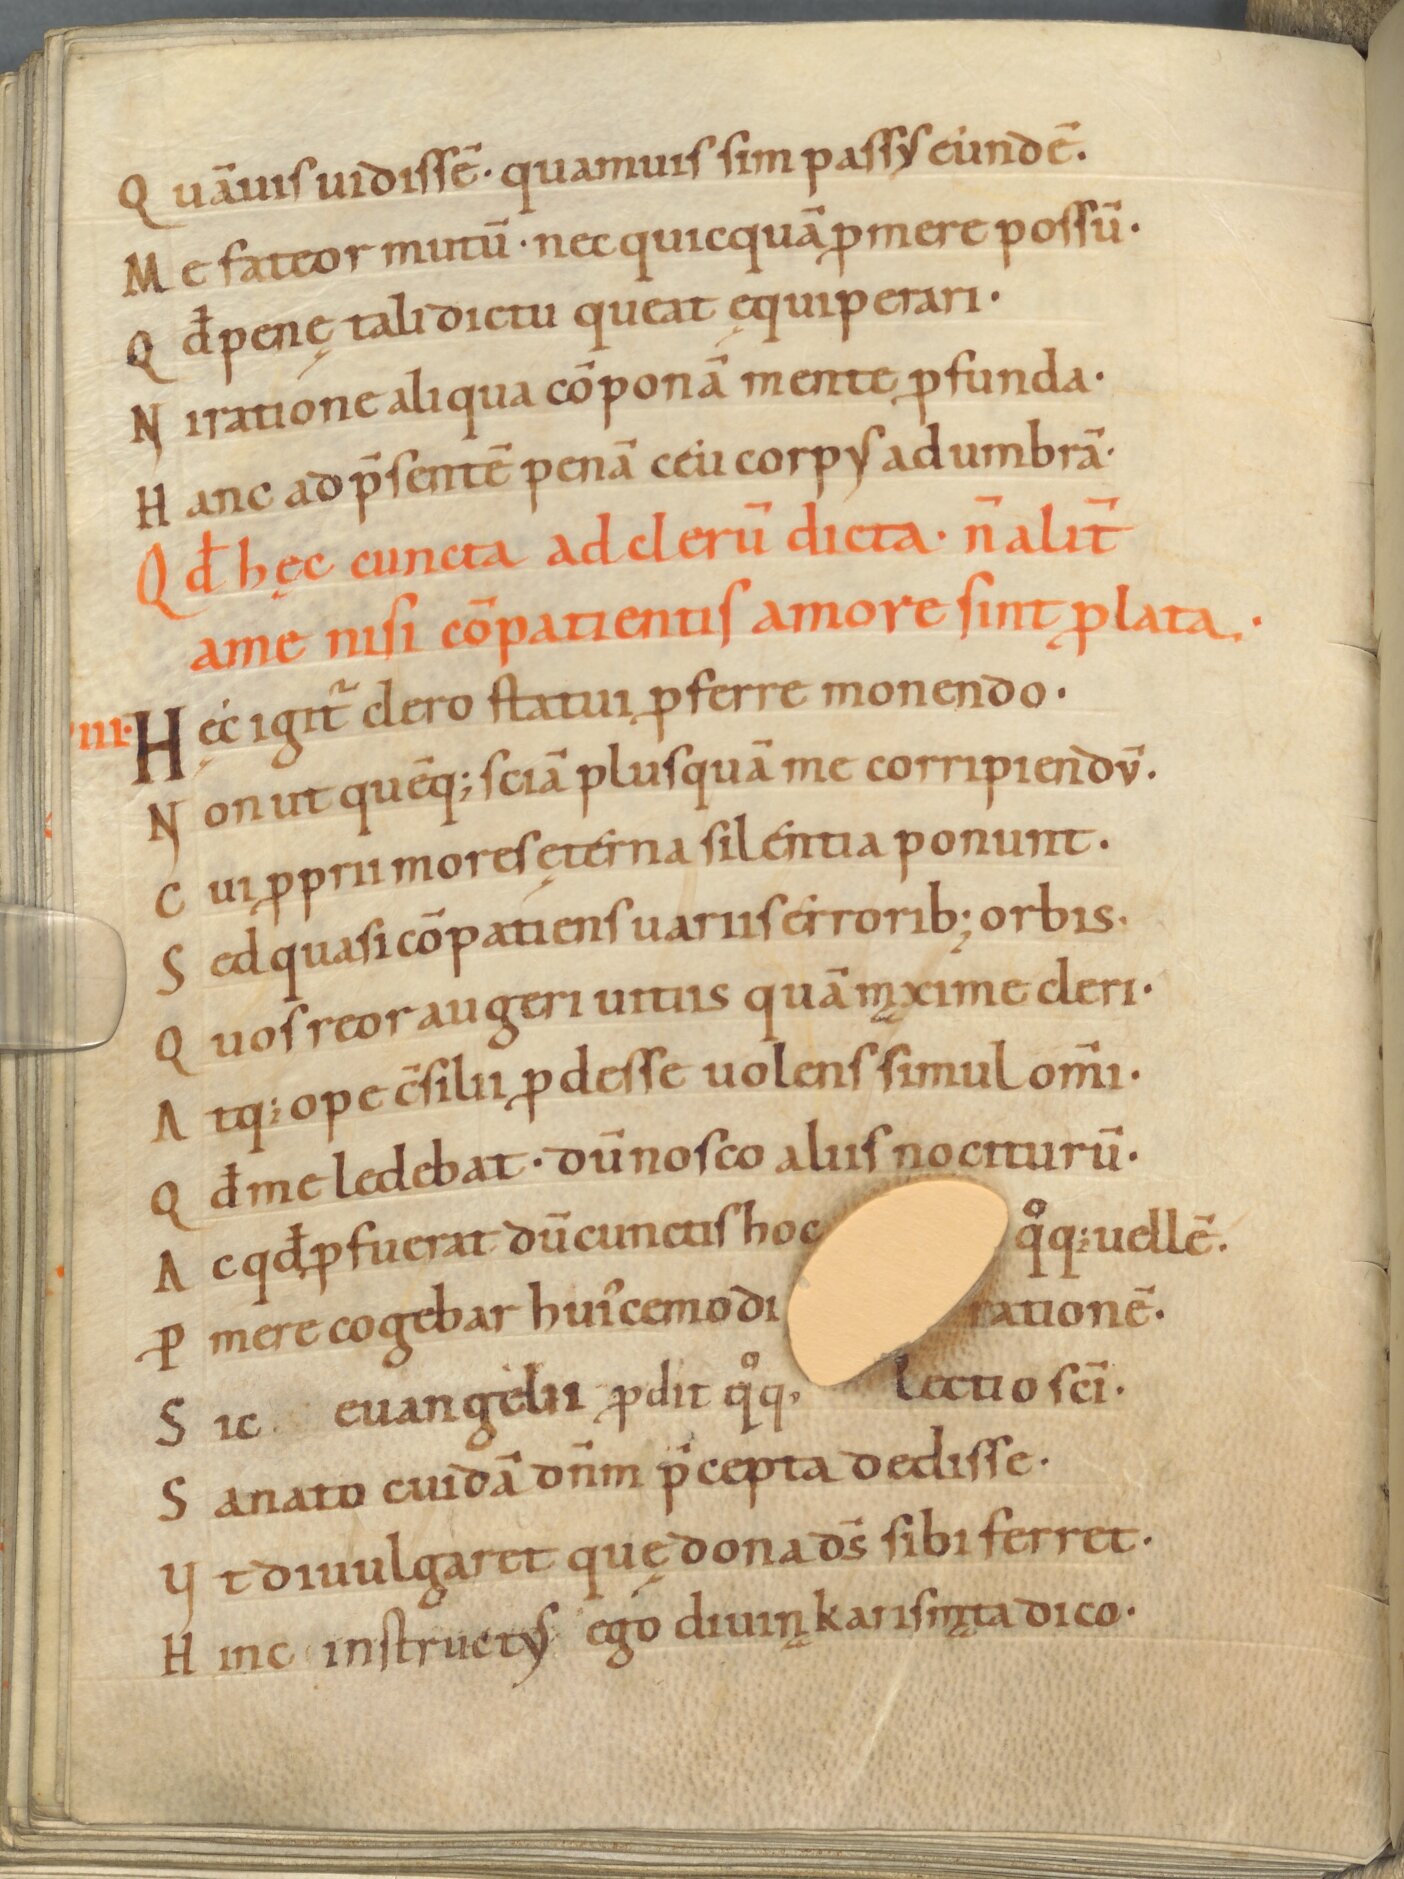 Quāuis uidissē · quamuis sim passꝰ eundē ·
Me fateor mutū · nec quicquā ꝓmere possū ·
Qđ penę tali dictu queat ęquiperari ·
Ni ratione aliqua cōponā mente ꝓfunda ·
Hanc ad p̄sentē penā ceu corpꝰ ad umbrā ·
Qđ hęc cuncta ad clerū dicta · n̄ alit̄
a me nisi cōpatientis amore sint ꝓlata ·
Hęc igit̄ clero statui ꝓferre monendo ·
Non ut quēq; sciā plusquā me corripiendū ·
Cui ꝓprii mores ęterna silentia ponunt ·
Sed quasi cōpatiens uariis errorib; orbis ·
Quos reor augeri uitiis quā mąxime cleri ·
Atq; ope c̄silii ꝓdesse uolens simul om̄i ·
Qđ me ledebat · dū nosco aliis nociturū ·
Ac qđ ꝓfuerat dū cunctis hoc qͦq; uellē ·
Ꝓmere cogebar huiꝰcemodi rationē ·
Sic euangelii ꝓdit qͦq, lectio sc̄i ·
Sanato cuidā dn̄m p̄cepta dedisse ·
Vt diuulgaret quę dona ds̄ sibi ferret ·
Hinc instructꝰ ego diuiną karismąta dico ·